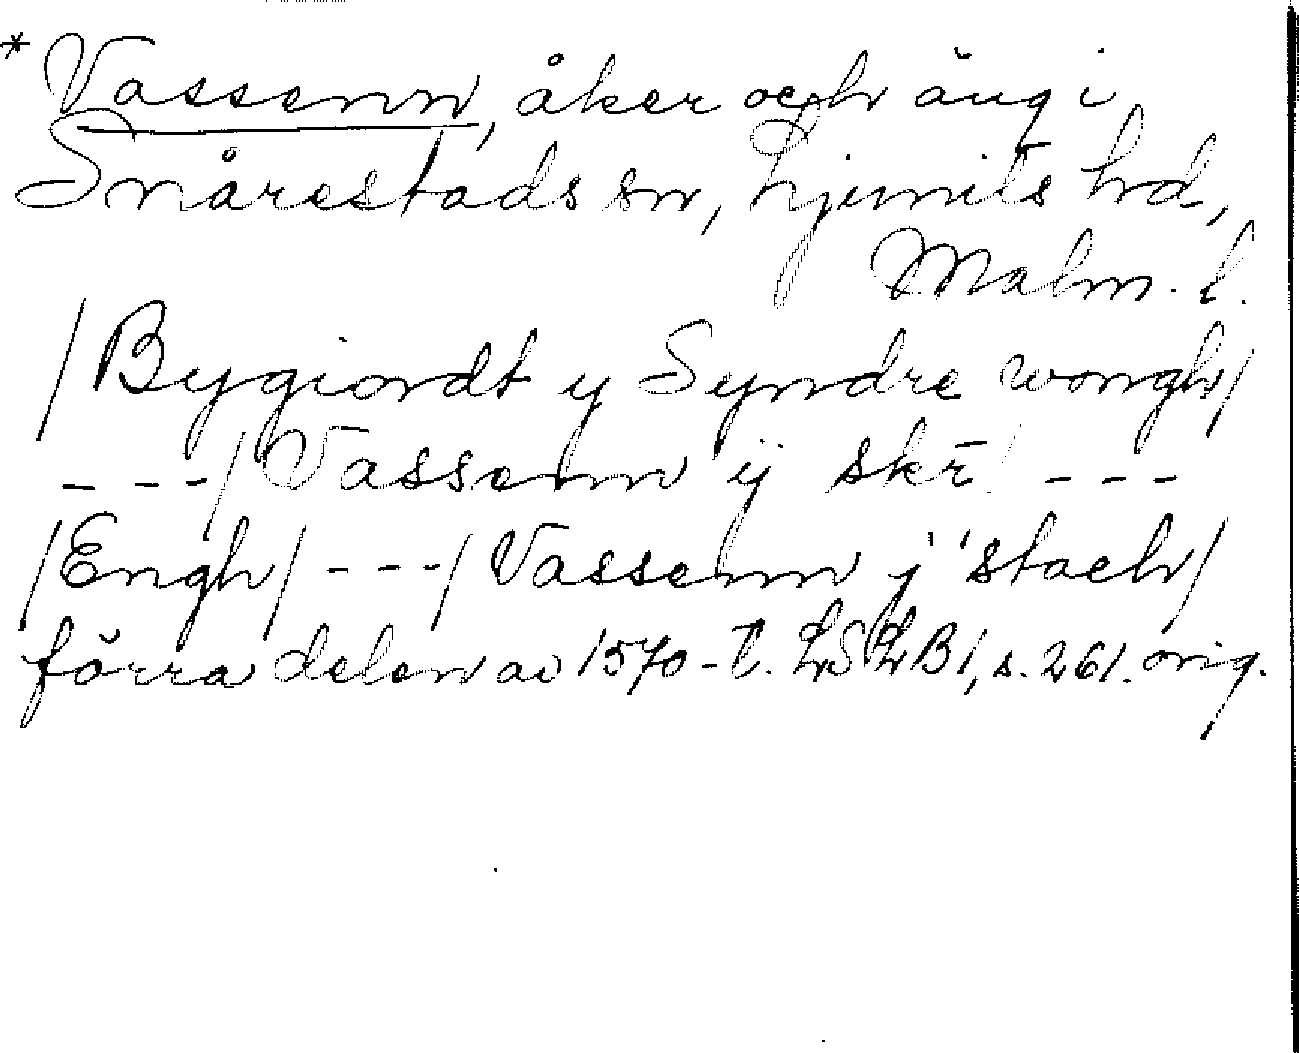 * Vassenn, åker och äng i
Snårestads sn, Ljunits hd,
Malm. l.
/Bygiordt y Syndre wongh/
---/Vassenn ÿ skr̄/ ---
/Engh/ ---/Vassenn j stach/
förra delen av 1570-t. LSLB1, s. 261. orig.